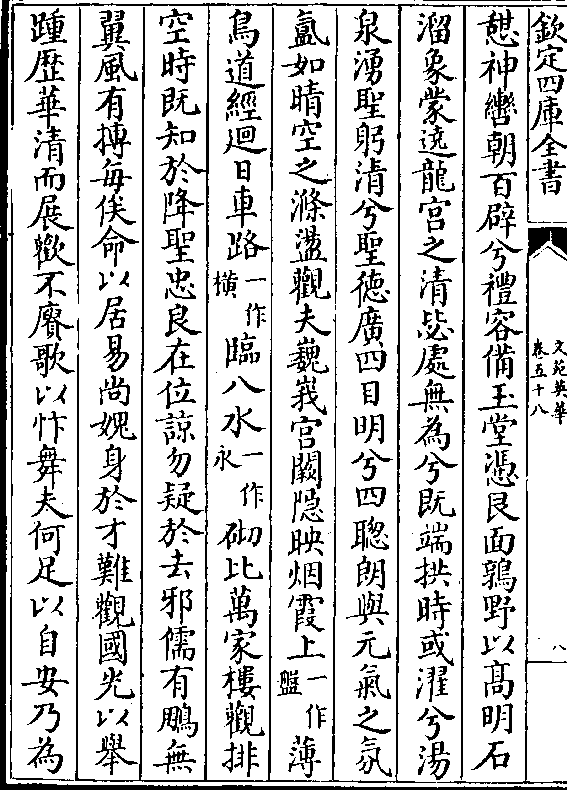 欽定四庫全書
文苑英華
卷五十八
八
憇神轡朝百辟兮禮容備玉堂憑艮面鶉野以高明石
溜象蒙遶龍宫之清毖處無為兮既端拱時或濯兮湯
泉湧聖躬清兮聖徳廣四目明兮四聦朗與元氣之氛
氲如晴空之滌盪觀夫巍峩宫闕隠映烟霞上一作盤薄
鳥道經迴日車路一作横臨八水一作永砌比萬家樓觀排
空時既知於降聖忠良在位諒勿疑於去邪儒有鵬無
翼風有摶每俟命以居易尚媿身於才難觀國光以舉
踵歴華清而展歡不賡歌以忭舞夫何足以自安乃為